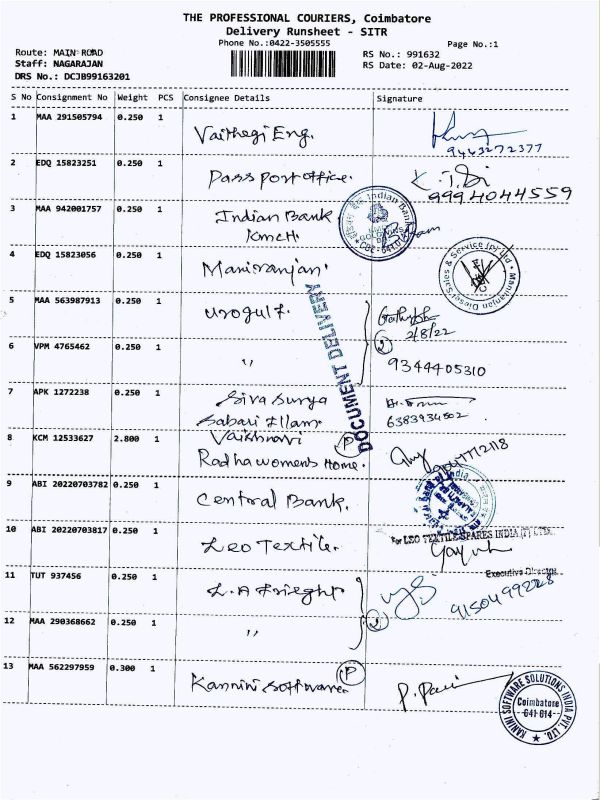 THE PROFESSIONAL COURIERS, Coimbatore
Delivery Runsheet - SITR
Phone No.:0422-3505555
Page No.:1
Route: MAIN ROAD
RS No.: 991632
Staff: NAGARAJAN
RS Date: 02-Aug-2022
DRS No.: DCJB99163201
S No Consignment No Weight PCS Consignee Details Signature
1 MAA 291505794 0.250 1 Vaithegi Eng.
9443272377
2 EDQ 15823251 0.250 1 Passport office.
9994044559
3 MAA 942001757 0.250 1 Indian Bank
KMCH.
Indian Bank
4 EDQ 15823056 0.250 1 Maniranjan.
Maniranjan Diesel Sales & Service (P) Ltd
5 MAA 563987913 0.250 1 Urogulf.
2/8/22
DOCUMENT DELIVERY
6 VPM 4765462 0.250 1 "
2
9344405310
7 APK 1272238 0.250 1 Siva Surya
Sabari Illam.
6383934502
8 KCM 12533627 2.800 1 Vaishnavi P
Radha womens Home.
9 ABI 20220703782 0.250 1 Central Bank.
10 ABI 20220703817 0.250 1 Leo Textile.
For LEO TEXTILE SPARES INDIA (P) LTD.
Executive Director
11 TUT 937456 0.250 1 L.A Frieght
2
12 MAA 290368662 0.250 1 "
13 MAA 562297959 0.300 1 Kannini software. P
KANINI SOFTWARE SOLUTIONS INDIA PVT. LTD.
Coimbatore
641 014